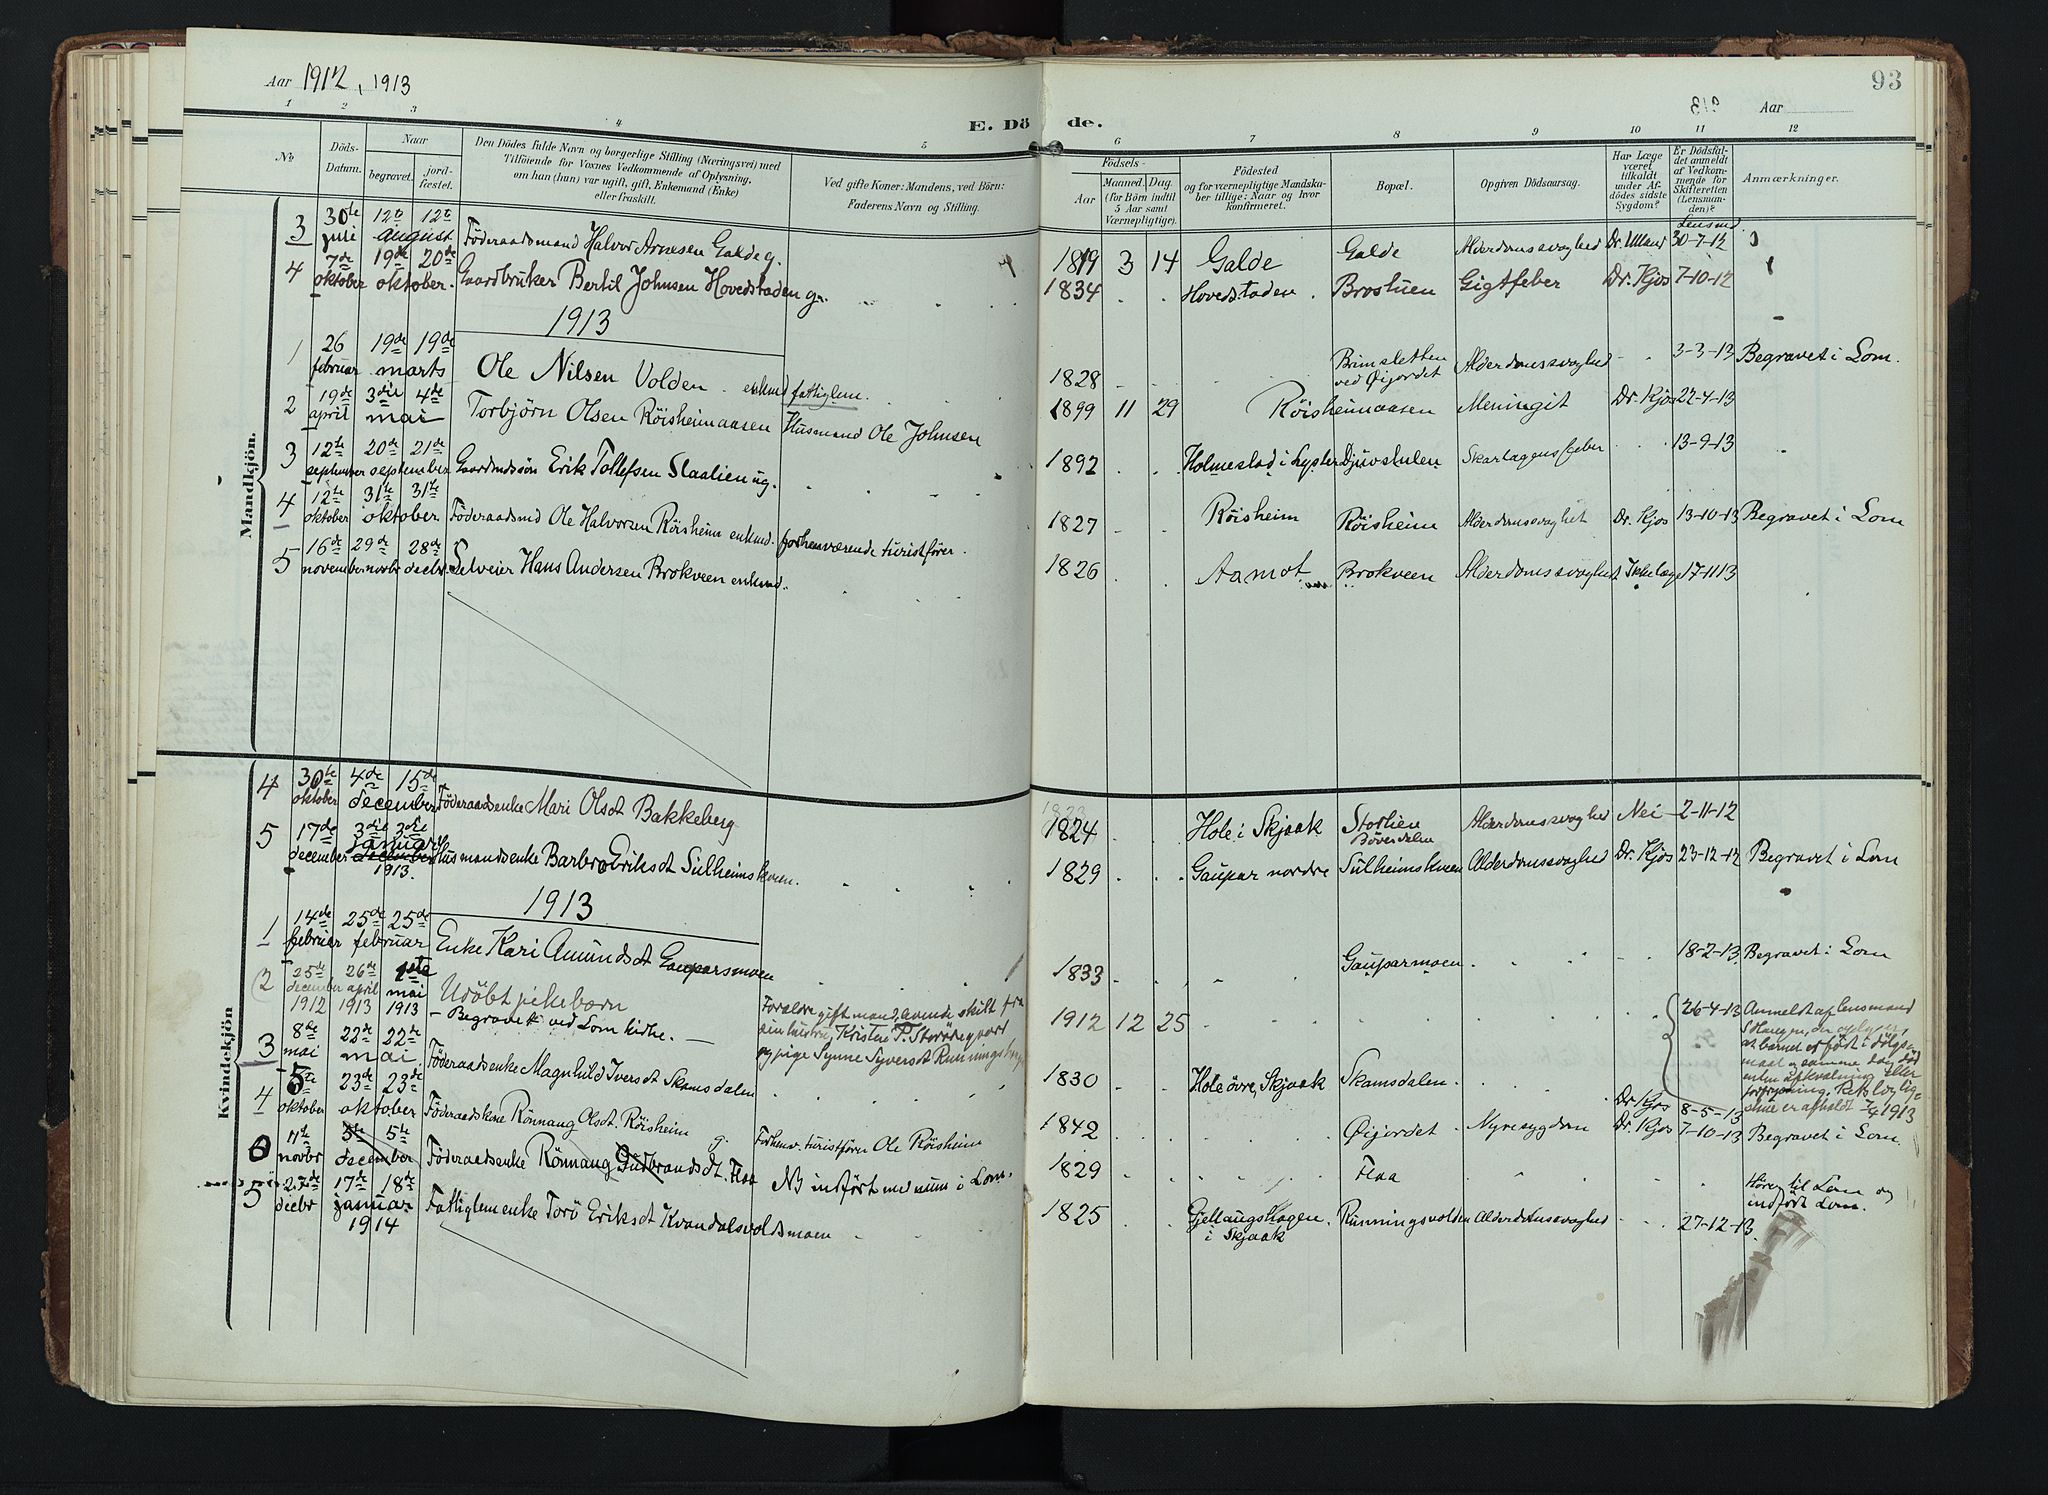 Aar 1912, 1913
93
Aar
E. Dö de.
1 2 3 4 5 6 7 8 9 10 11 12
No
Döds-Datum.
Naar
begravet.
jord-fæstet.
Den Dödes fulde Navn og borgerlige Stilling (Næringsvei) med
Tilföiende for Voxnes Vedkommende af Oplysning,
om han (hun) var ugift, gift, Enkemand (Enke)
eller fraskilt.
Ved gifte Koner: Mandens, ved Börn:
Faderens Navn og Stilling.
Födsels-
Aar
Maaned. Dag.
(for Börn indtil
5 Aar samt
Værnepligtige).
Födested
og for værnepligtige Mandska-
ber tillige: Naar og hvor
konfirmeret.
Bopæl.
Opgiven Dödsaarsag.
Har Læge
været
tilkaldt
under Af-
dödes sidste
Sygdom?
Er Dödsfal-
det anmeldt
af Vedkom-
mende for
Skifteretten
(Lensman-
den)?
Anmærkninger.
Mandkjön.
3 30te juli 12te 12te august Föderaadsmand Halvor Arnesen Galde g. 1819 3 14 Galde Galde Alderdomssvaghed Lensmd 30-7-12
4 7de oktober 19de 20de oktober. Gaardbruker Bertil Johnsen Hovedstaden g. 1834 Hovedstaden Brostuen Gigtfeber Dr. Kjos 7-10-12
1913
1 26 februar 19de 19de marts Ole Nilsen Volden enkmd fattiglem. 1828 Brimsletten ved Øijordet Alderdomssvaghed 3-3-13 Begravet i Lom.
2 19de april 3die 4de mai Torbjörn Olsen Röisheimaasen Husmand Ole Johnsen 1899 11 29 Röisheimaasen Meningit Dr. Kjos 22-4-13
3 12te september 20de 21de september Gaardmdssön Erik Tollefsen Slaalien ug. 1892 Holmestad i Lyster Djuvstulen Skarlagensfeber 13-9-13
4 12te oktober 31te 31te oktober Föderaadsmd Ole Halvorsen Röisheim enkmd. forhenværende turistförer. 1827 Röisheim Röisheim Alderdomssvaghet Dr. Kjos 13-10-13 Begravet i Lom
5 16de november 29de novbr 28de decbr. Selveier Hans Andersen Brokveen enkmd. 1826 Aamot Brokveen Alderdomssvaghed Ikke læge 17-11 13
Kvindekjön
4 30te oktober 4de 15de december Föderaadsenke Mari Olsdt Bakkeberg 1824 Hole i Skjaak Storlien Böverdalen Alderdomssvaghed Nei 2-11-12
5 17de december 3die 3die januar december 1913. Husmandsenke Barbro Eriksdt Sulheimskveen. 1829 Gaupar nordre Sulheimskveen Alderdomssvaghed Dr. Kjos 23-12-12 Begravet i Lom
1913
1 14de februar 25de 25de februar Enke Kari Amundsdt Gauparsmoen 1833 Gauparmoen 18-2-13 Begravet i Lom
2 25de december 1912 26de april 1913 1ste mai 1913 Udöbt pikebarn
– Begravet ved Lom kirke. –
Forældre gift mand, levende skilt fra
sin hustru, Kristen P. Storöregvart
og pige Synne Syversdt Runningshaug
1912 12 25 26-4-13 Anmeldt af lensmand
S Haugen, der oplyser,
at barnet er født i dølgs-
maal og samme dag død
enten af kvælning eller
forfrysning. Retslig lig-
skue er afholdt 7/4 1913
3 8de mai 22de 22de mai Föderaadsenke Magnhild Iversdt Skamsdalen 1830 Hole övre, Skjaak Skamsdalen Dr. Kjos 8-5-13
4 5te oktober 23de 23de oktober Föderaadskone Rönnaug Olsdt. Röisheim g. Forhenv. turistförer Ole Röisheim 1842 Øijordet Nyresygdom Dr. Kjos 7-10-13 Begravet i Lom
0 11te novbr 5te 5te december Föderaadsenke Rönnaug Gudbrandsdt. Flaa NB indfört med num i Lom. 1829 Flaa Hörer til Lom og
indfört Lom.
5 27de decbr 17de 18de januar 1914 Fattiglem enke Torö Eriksdt Kvandalsvoldsmoen 1825 Gjellaugshagen i Skjaak Runningsvolden Alderdomssvaghed 27-12-13.